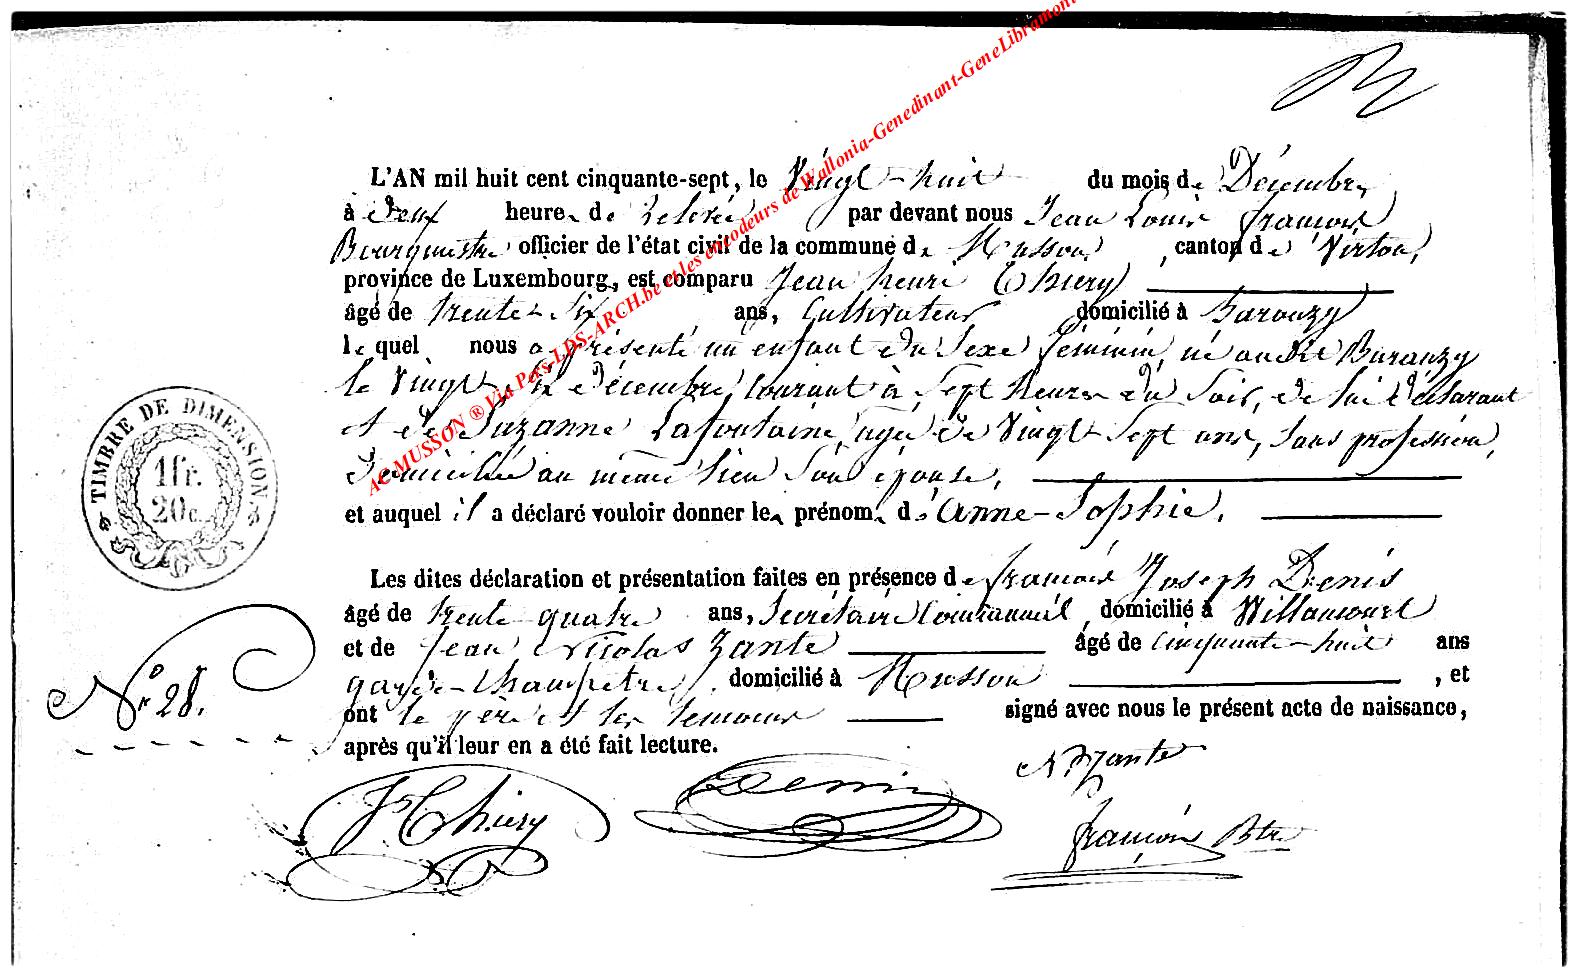 AC MUSSON ® Via Pers-LDS-ARCH.be et les encodeurs de Wallonia-Genedinant-GeneLibramont
L'AN mil huit cent cinquante-sept, le Vingt-huit du mois de Décembre
à deux heures de relevée par devant nous Jean Louis François
Bourgmestre officier de l'état civil de la commune de Musson, canton de Virton,
province de Luxembourg, est comparu Jean henri Thiery
âgé de trente-six ans, Cultivateur domicilié à Baranzy
le quel nous a présenté un enfant du Sexe féminin, né audit Baranzy
le Vingt Décembre courant à Sept heures du Soir, de lui déclarant
et de Suzanne Lafontaine, agée de Vingt-Sept ans, Sans profession,
domiciliée au même lieu Son épouse,
et auquel il a déclaré vouloir donner les prénoms d'Anne-Sophie.
Les dites déclaration et présentation faites en présence de françois Joseph Denis
âgé de trente quatre ans, Secrétaire Communal, domicilié à Willancourt
et de Jean Nicolas Zante âgé de Cinquante-huit ans
garde-Champêtre, domicilié à Musson, et
ont le père et les temoins signé avec nous le présent acte de naissance,
après qu'il leur en a été fait lecture.
TIMBRE DE DIMENSION
1fr.
20c.
No 28.
N. Zante
Thiery
Denis
françois Btre